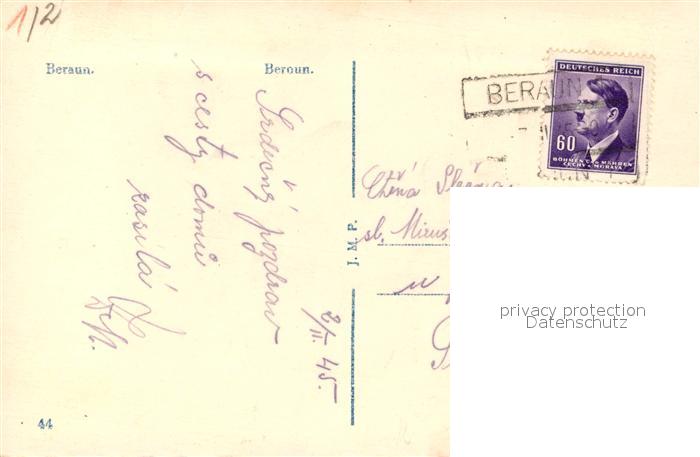 1/2
Beraun.
Beroun.
Srdečný pozdrav
s cesty domů
zasílá
2/II. 45.
44
J. M. P.
BERAUN
DEUTSCHES REICH
60
BÖHMEN UND MÄHREN
ČECHY A MORAVA
Ctěná
sl.
privacy protection
Datenschutz